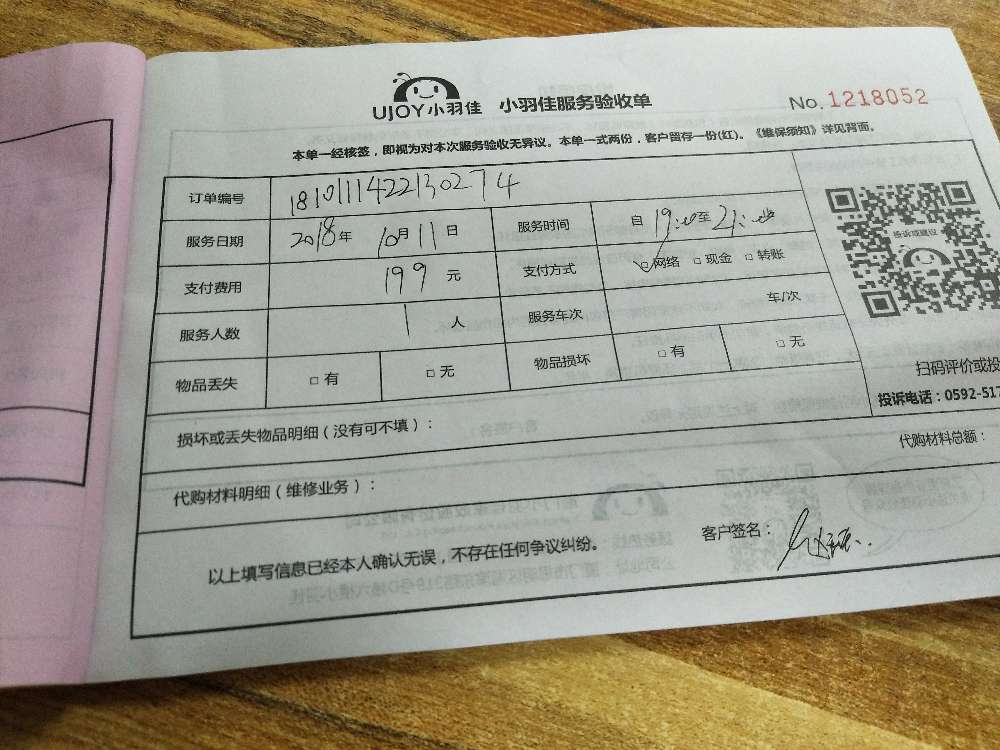 UJOY小羽佳 小羽佳服务验收单 No.1218052
本单一经核签，即视为对本次服务验收无异议。本单一式两份，客户留存一份(红)。《维保须知》详见背面。
订单编号 1810111422130274
服务日期 2018年 10月11日 服务时间 自 19: 至 21:
支付费用 199 元 支付方式 ☑网络 □现金 □转账
服务人数 1 人 服务车次 车/次
物品丢失 □有 □无 物品损坏 □有 □无
投诉或建议
扫码评价或投
投诉电话：0592-517
损坏或丢失物品明细（没有可不填）：
代购材料明细（维修业务）： 代购材料总额：
以上填写信息已经本人确认无误，不存在任何争议纠纷。 客户签名：